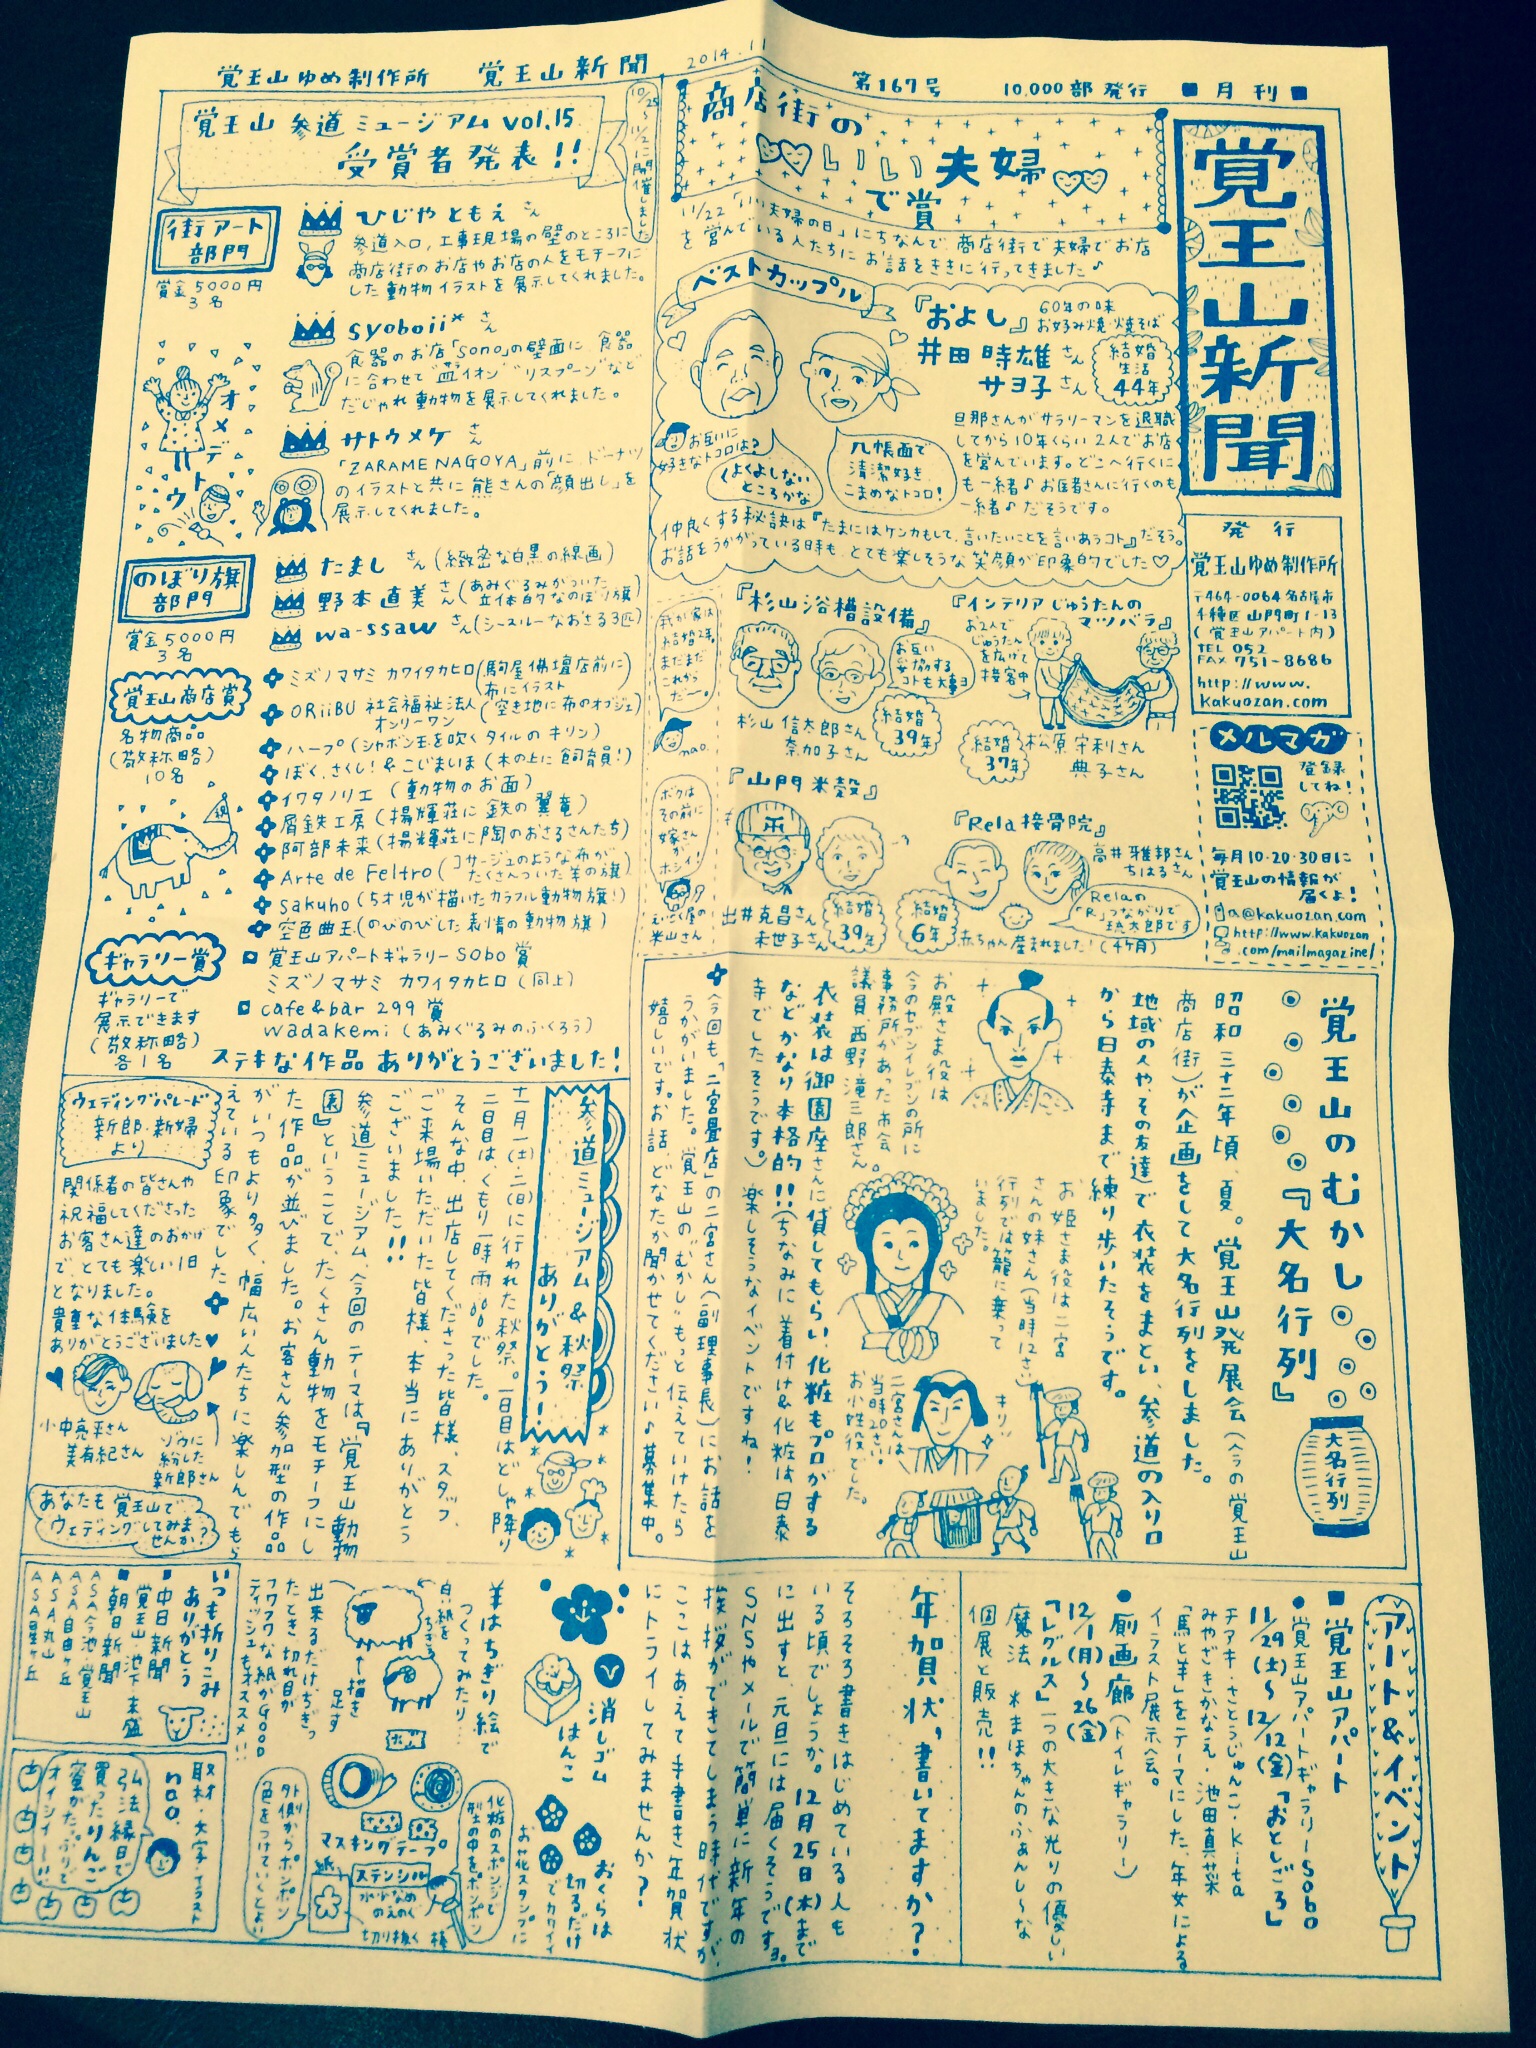 覚王山ゆめ制作所 覚王山新聞 2014.11 第167号 10,000部発行 ■月刊■
覚王山新聞
発行
覚王山ゆめ制作所
〒464-0064 名古屋市
千種区山門町1-13
(覚王山アパート内)
TEL 052
FAX 751-8686
http://www.
kakuozan.com
メルマガ
登録
してね!
毎月10・20・30日に
覚王山の情報が
届くよ!
a@kakuozan.com
http://www.kakuozan
.com/mailmagazine/
商店街の
いい夫婦
で賞
11/22「いい夫婦の日」にちなんで、商店街で夫婦でお店
を営んでいる人たちにお話をききに行ってきました♪
ベストカップル
『およし』
60年の味
お好み焼・焼そば
井田時雄さん
サヨ子さん
結婚
生活
44年
旦那さんがサラリーマンを退職
してから10年くらい2人でお店
を営んでいます。どこへ行くに
も一緒♪お医者さんに行くのも
一緒♪だそうです。
お互いに
好きなトコロは?
くよくよしない
ところかな
几帳面で
清潔好き
こまめなトコロ!
仲良くする秘訣は『たまにはケンカもして、言いたいことを言いあうコト』だそう。
お話をうかがっている時も、とても楽しそうな笑顔が印象的でした♡
我が家は
結婚2年。
まだまだ
これから
だー。
nao.
ボクは
その前に
嫁さんが
ホシイ!
米山さん
『杉山浴槽設備』
お互い
妥協する
コトも大事ヨ
杉山信太郎さん
奈加子さん
結婚
39年
『インテリアじゅうたんの
マツバラ』
お2人で
じゅうたん
を広げて
接客中
結婚
37年
松原守利さん
典子さん
『山門米穀』
出井克昌さん
未世子さん
結婚
39年
『Rela接骨院』
結婚
6年
高井雅邦さん
ちはるさん
Relaの
「R」つながりで
琉太郎です
赤ちゃん産まれました!(4ヶ月)
覚王山 参道ミュージアム vol.15
受賞者発表!!
10/25~11/2に開催しました
街アート
部門
賞金5000円
3名
オメデトウ
ひじやともえさん
参道入口、工事現場の壁のところに
商店街のお店やお店の人をモチーフに
した動物イラストを展示してくれました。
syoboii*さん
食器のお店「sono」の壁面に、食器
に合わせて"皿イオン""リスプーン"など
だじゃれ動物を展示してくれました。
サトウメケさん
「ZARAME NAGOYA」前に、ドーナツ
のイラストと共に熊さんの「顔出し」を
展示してくれました。
のぼり旗
部門
賞金5000円
3名
たまし さん(緻密な白黒の線画)
野本直美さん(あみぐるみがついた立体的なのぼり旗)
wa-ssaw さん(シースルーなおさる3匹)
覚王山商店賞
名物商品
(敬称略)
10名
ミズノマサミ カワイタカヒロ(駒屋佛壇店前に布にイラスト)
ORiiBU 社会福祉法人オンリーワン(空き地に布のオブジェ)
ハープ(シャボン玉を吹くタイルのキリン)
ぼく、さくし!&こじまいほ(木の上に飼育員!)
イワタノリエ(動物のお面)
屑鉄工房(揚輝荘に鉄の翼竜)
阿部未来(揚輝荘に陶のおさるさんたち)
Arte de Feltro(コサージュのような布がたくさんついた羊の旗)
sakuho(5才児が描いたカラフル動物旗!)
空色曲玉(のびのびした表情の動物旗)
祝
ギャラリー賞
ギャラリーで
展示できます
(敬称略)
各1名
覚王山アパートギャラリーsobo賞
ミズノマサミ カワイタカヒロ(同上)
cafe&bar 299賞
wadakemi(あみぐるみのふくろう)
ステキな作品ありがとうございました!
覚王山のむかし
『大名行列』
大名行列
昭和三十二年頃、夏。覚王山発展会(今の覚王山
商店街)が企画をして大名行列をしました。
地域の人や、その友達で衣装をまとい、参道の入り口
から日泰寺まで練り歩いたそうです。
お殿さま役は
今のセブンイレブンの所に
事務所があった市会
議員西野滝三郎さん。
お姫さま役は二宮
さんの妹さん(当時12さい)
行列では籠に乗って
いました。
キリッ
二宮さんは
当時20さい。
お小姓役でした。
衣装は御園座さんに貸してもらい、化粧もプロがする
などかなり本格的!!(ちなみに着付け&化粧は日泰
寺でしたそうです。)楽しそうなイベントですね!
今回も、「二宮畳店」の二宮さん(副理事長)にお話を
うかがいました。覚王山の"むかし"もっと伝えていけたら
嬉しいです。お話、どなたか聞かせてください♪募集中。
参道ミュージアム&秋祭
ありがとう!
十一月一(土)、二(日)に行われた秋祭。一日目はどしゃ降り
二日目は、くもり一時雨。。。でした。
そんな中、出店してくださった皆様、スタッフ、
ご来場いただいた皆様、本当にありがとう
ございました!!
参道ミュージアム、今回のテーマは『覚王山動物
園』ということで、たくさん動物をモチーフにし
た作品が並びました。お客さん参加型の作品
がいつもより多く、幅広い人たちに楽しんでもら
えている印象でした
ウエディングパレード
新郎・新婦
より
関係者の皆さんや
祝福してくださった
お客さん達のおかげ
で、とても楽しい1日
となりました。
貴重な体験を
ありがとうございました♥
小中亮平さん
美有紀さん
ゾウに
紛した
新郎さん
あなたも覚王山で
ウェディングしてみま
せんか?
アート&イベント
■覚王山アパート
●覚王山アパートギャラリーsobo
11/29(土)~12/12(金)「おとしごろ」
チアキ・さとうじゅんこ・kita
みやざきかなえ・池田真菜
「馬と羊」をテーマにした、年女による
イラスト展示会。
●廁画廊(トイレギャラリー)
12/1(月)~26(金)
「レグルス」一つの大きな光りの優しい
魔法 米まほちゃんのふぁんしーな
個展と販売!!
年賀状、書いてますか?
そろそろ書きはじめている人も
いる頃でしょうか。12月25日(木)まで
に出すと、元旦には届くそうですヨ。
SNSやメールで簡単に新年の
挨拶ができてしまう時代ですが、
ここはあえて手書き年賀状
にトライしてみませんか?
消しゴム
はんこ
おくらは
切るだけ
でカワイイ
お花スタンプに
羊はちぎり絵で
つくってみたり…
白い紙を
ちぎる
描き
足す
出来るだけ、ちぎっ
たとき、切れ目が
フワフワな紙がGOOD
ティッシュもオススメ!!
マスキングテープ
ステンシル
水少なめ
のえのぐ
紙
切り抜く
棒
化粧のスポンジで
型の中をポンポン
外側からポンポン
色をつけていくとよい
いつも折りこみ
ありがとう
■中日新聞
覚王山・池下・末盛
■朝日新聞
ASA今池・覚王山
ASA自由ヶ丘
ASA丸山
ASA星ヶ丘
取材・文字・イラスト
nao.
弘法縁日で
買ったりんご
蜜がたっぷりで
オイシイー!!